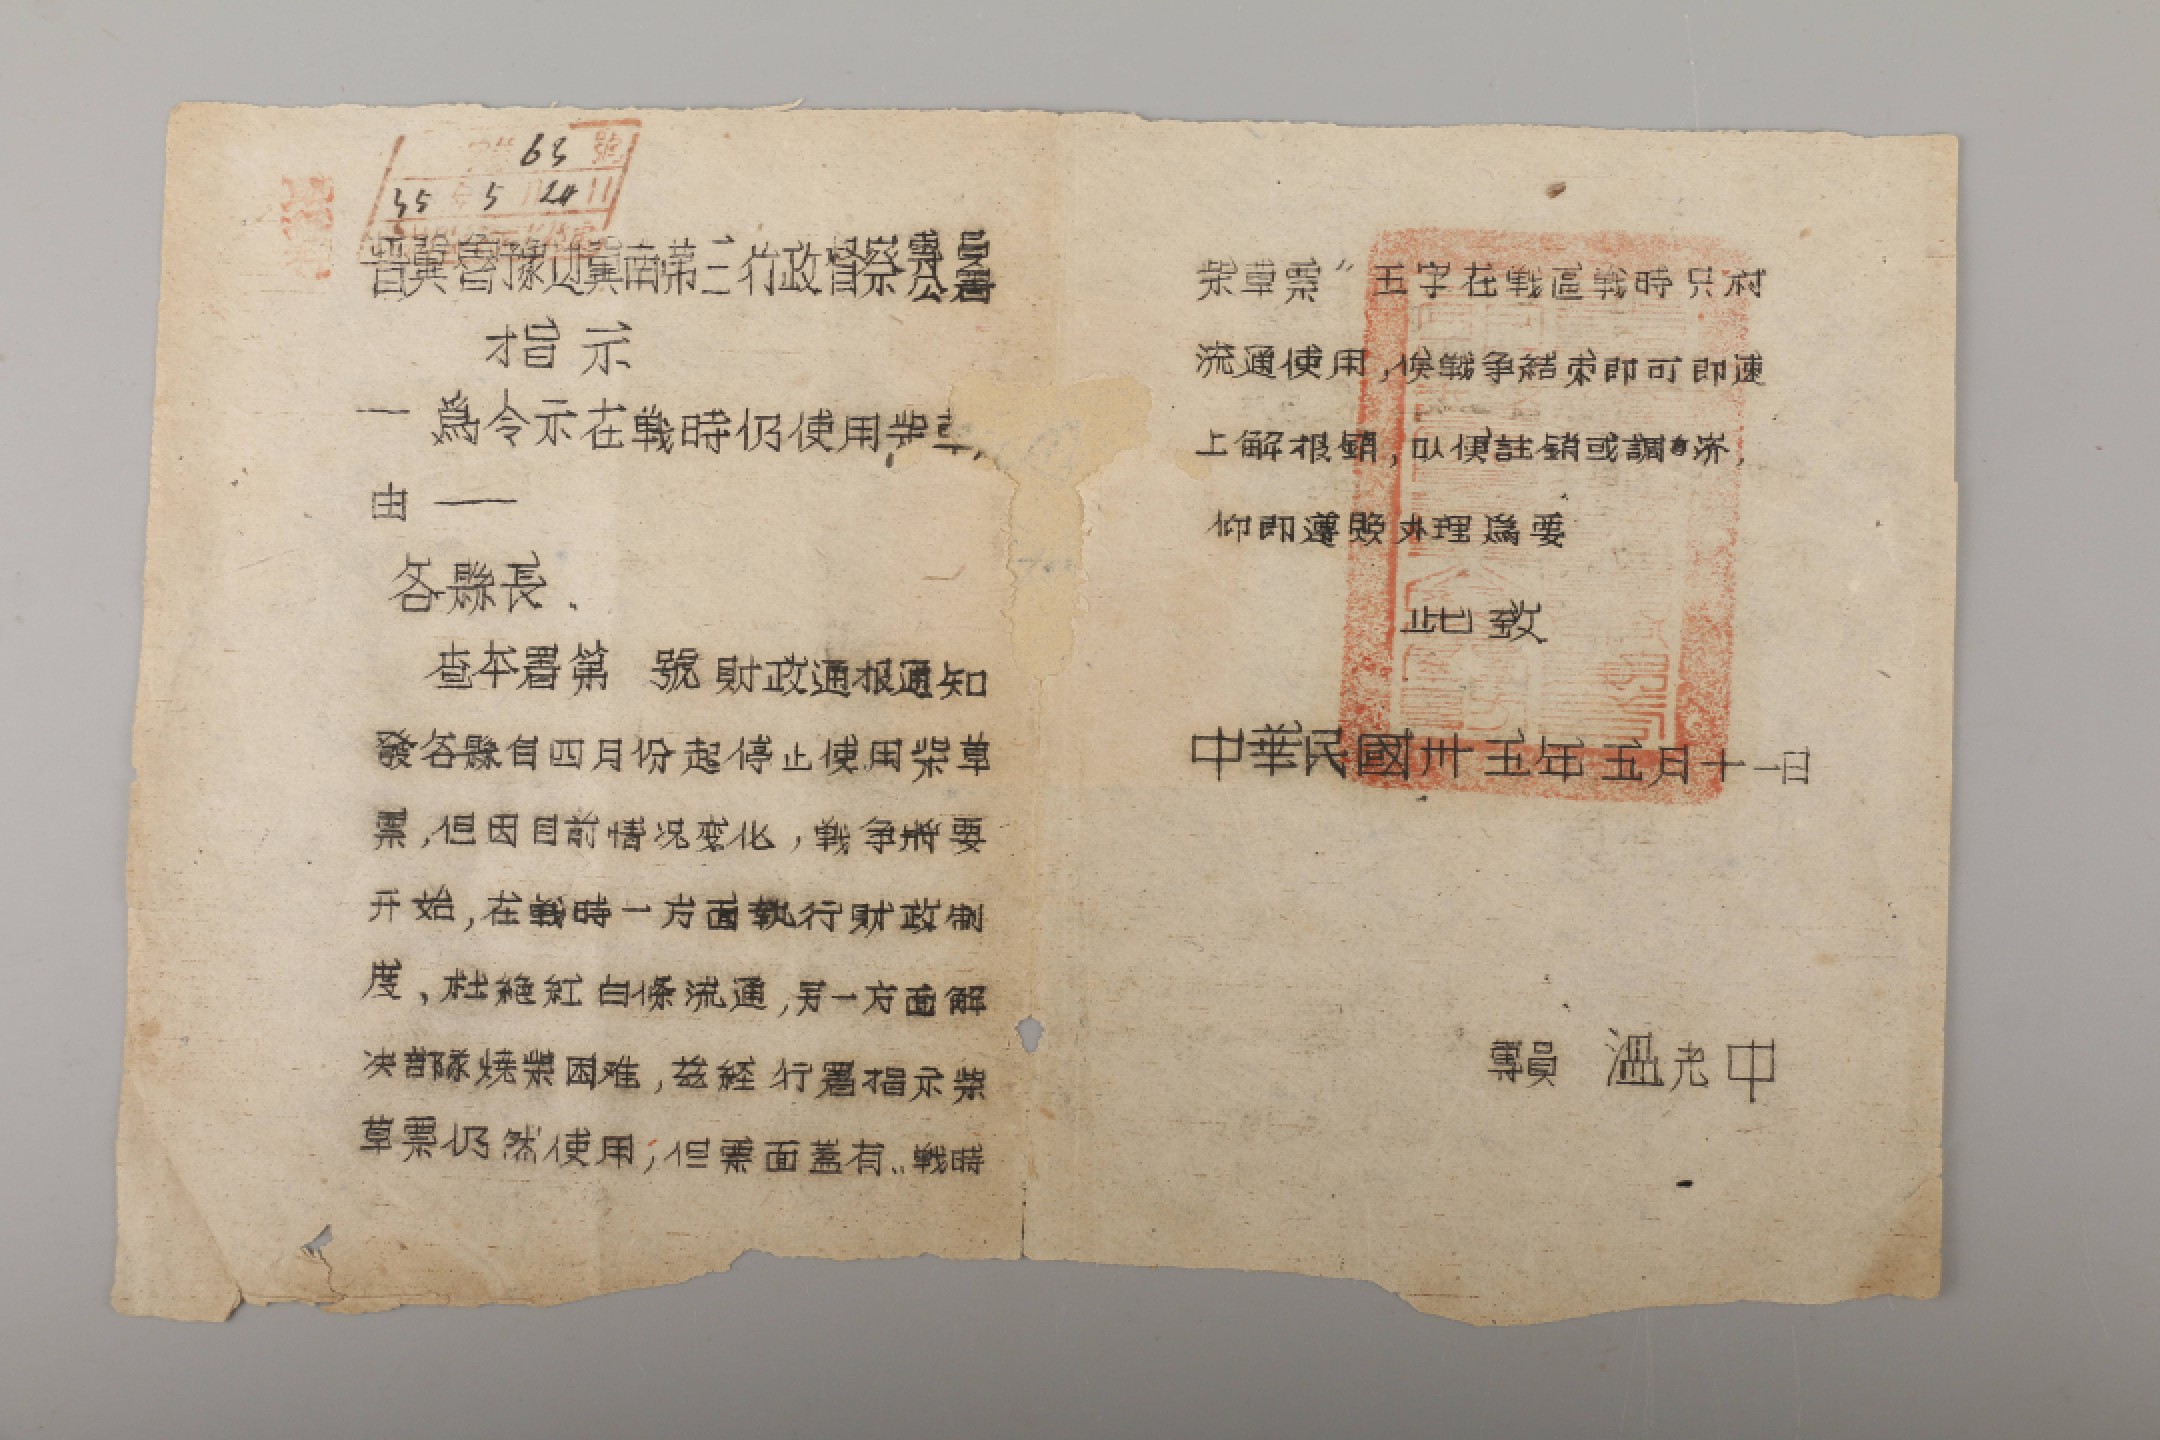 63 號
35 年 5 月 24 日
晋冀魯豫边冀南第三行政督察專員公署
指示
一 為令示在戰時仍使用柴草
由 一
各縣長.
查本署第 號財政通报通知
發各縣自四月份起停止使用柴草
票,但因目前情况变化,戰争將要
开始,在戰時一方面執行財政制
度、杜絶紅白條流通,另一方面解
决部隊燒柴困难,兹經行署指示柴
草票仍然使用;但票面盖有"戰時
柴草票"五字在戰區戰時只村
流通使用,俟戰争結束即可即速
上解报銷,以便註銷或調济,
仰即遵照办理為要
此致
中華民國卅五年五月十一日
專員 溫光中